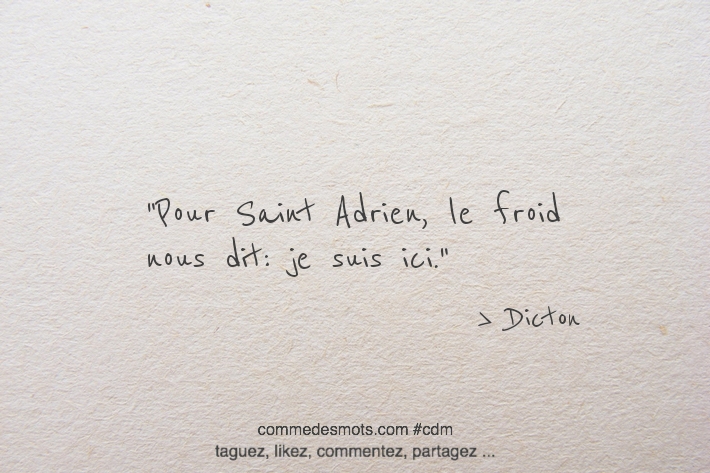 "Pour Saint Adrien, le froid
nous dit: je suis ici."
> Dicton
commedesmots.com #cdm
taguez, likez, commentez, partagez ...